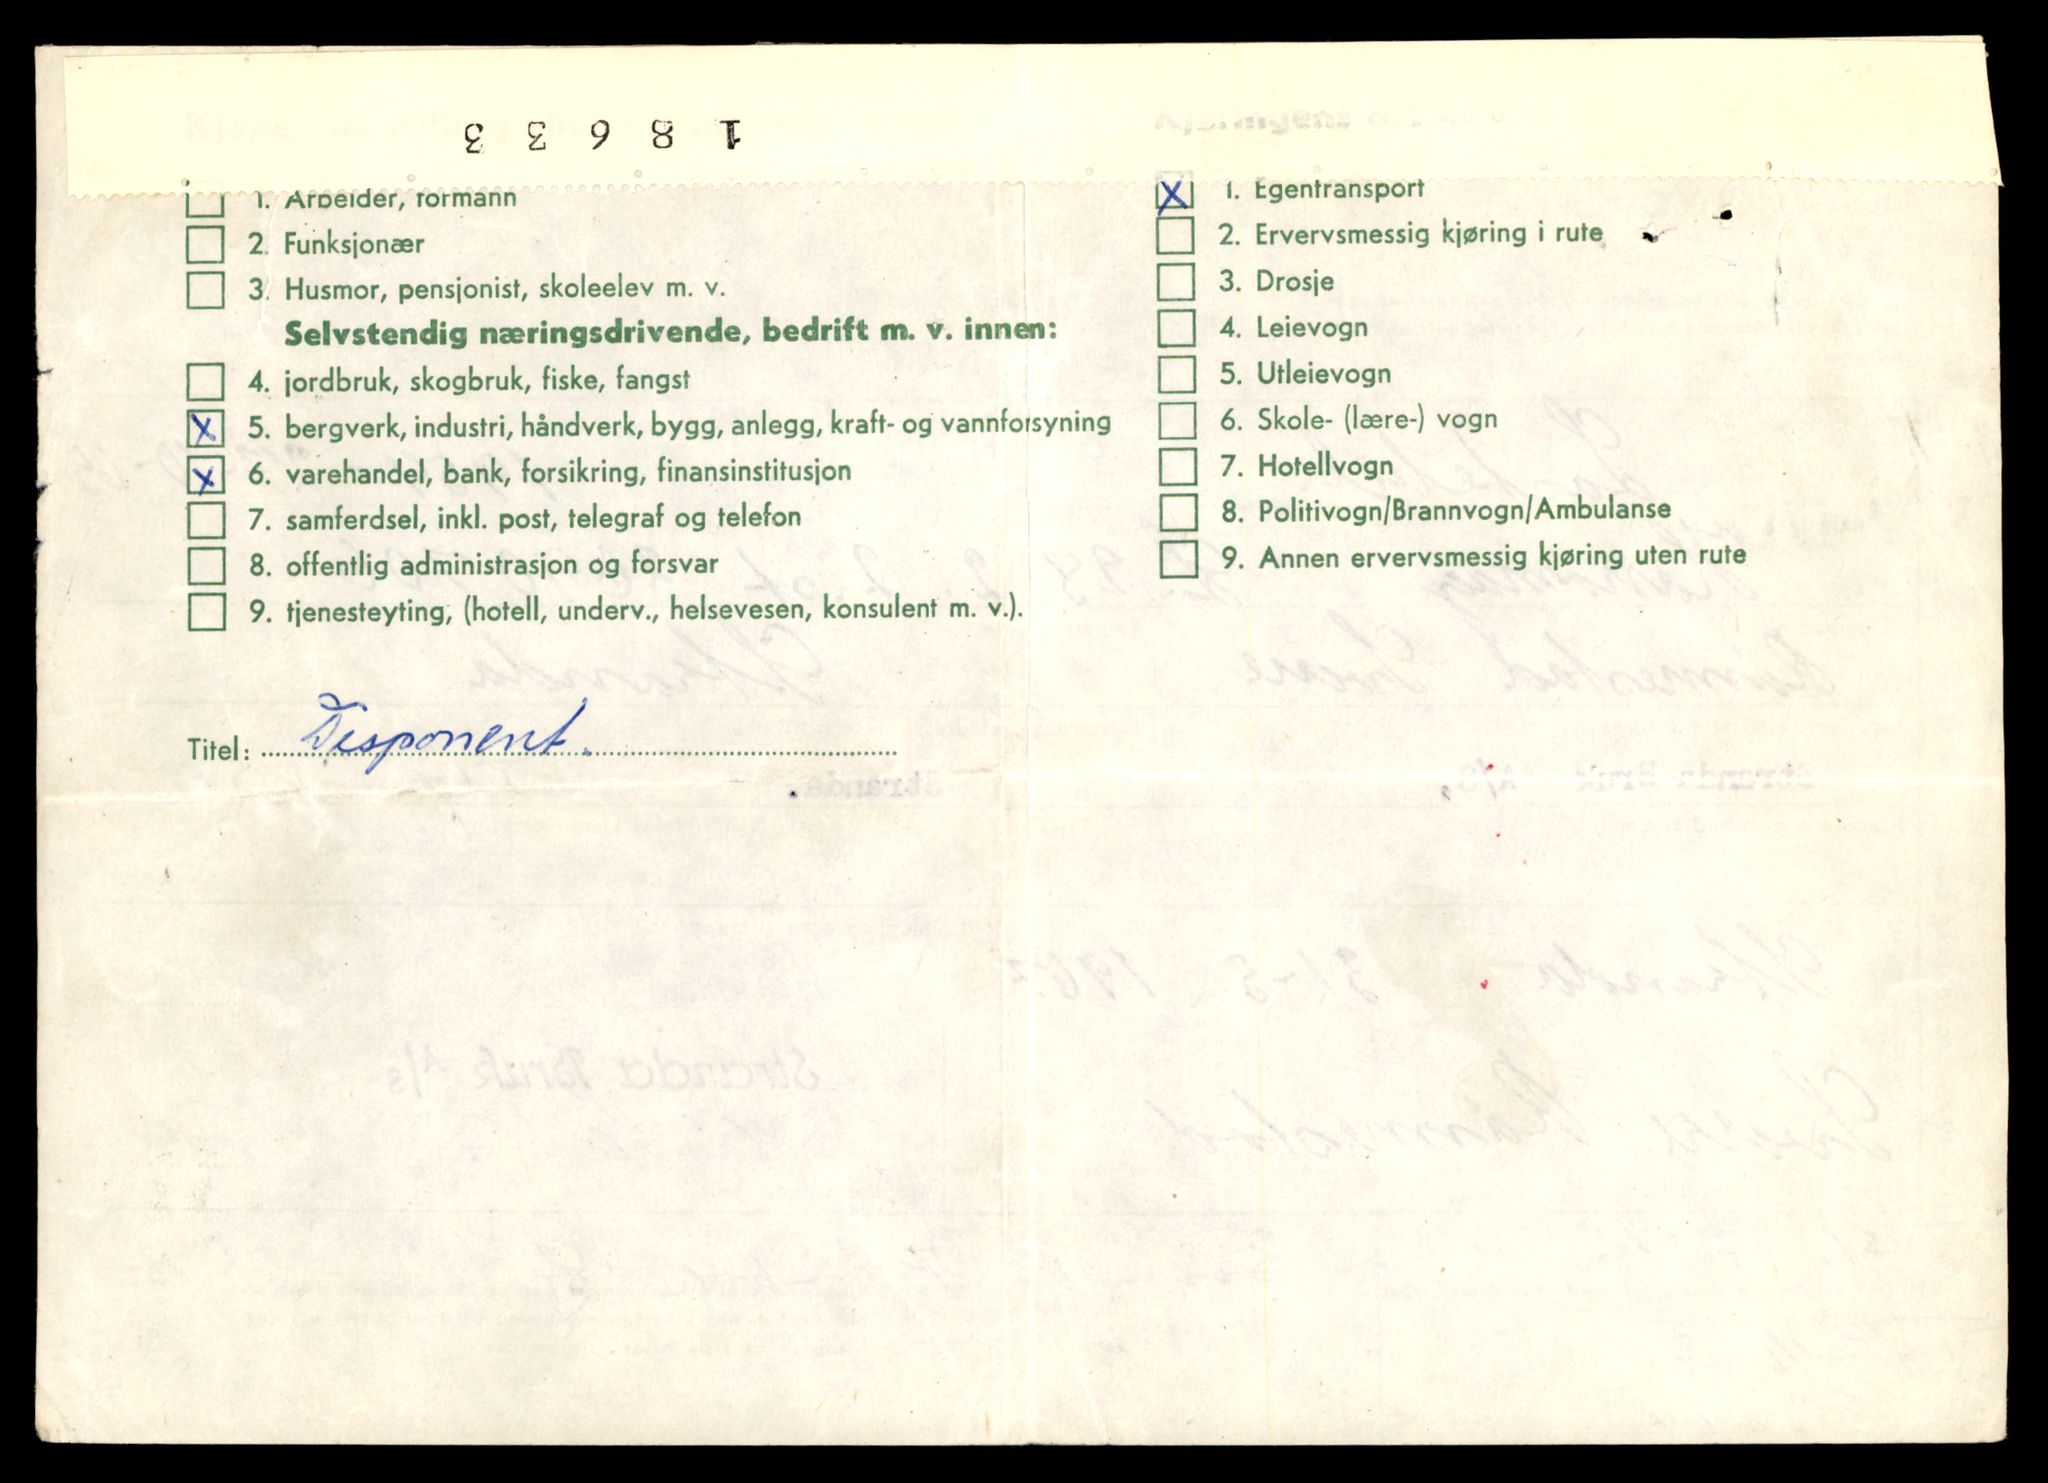 18633
1. Arbeider, formann
2. Funksjonær
3. Husmor, pensjonist, skoleelev m. v.
Selvstendig næringsdrivende, bedrift m. v. innen:
4. jordbruk, skogbruk, fiske, fangst
X 5. bergverk, industri, håndverk, bygg, anlegg, kraft- og vannforsyning
X 6. varehandel, bank, forsikring, finansinstitusjon
7. samferdsel, inkl. post, telegraf og telefon
8. offentlig administrasjon og forsvar
9. tjenesteyting, (hotell, underv., helsevesen, konsulent m. v.).
Titel: Disponent.
X 1. Egentransport
2. Ervervsmessig kjøring i rute
3. Drosje
4. Leievogn
5. Utleievogn
6. Skole- (lære-) vogn
7. Hotellvogn
8. Politivogn/Brannvogn/Ambulanse
9. Annen ervervsmessig kjøring uten rute